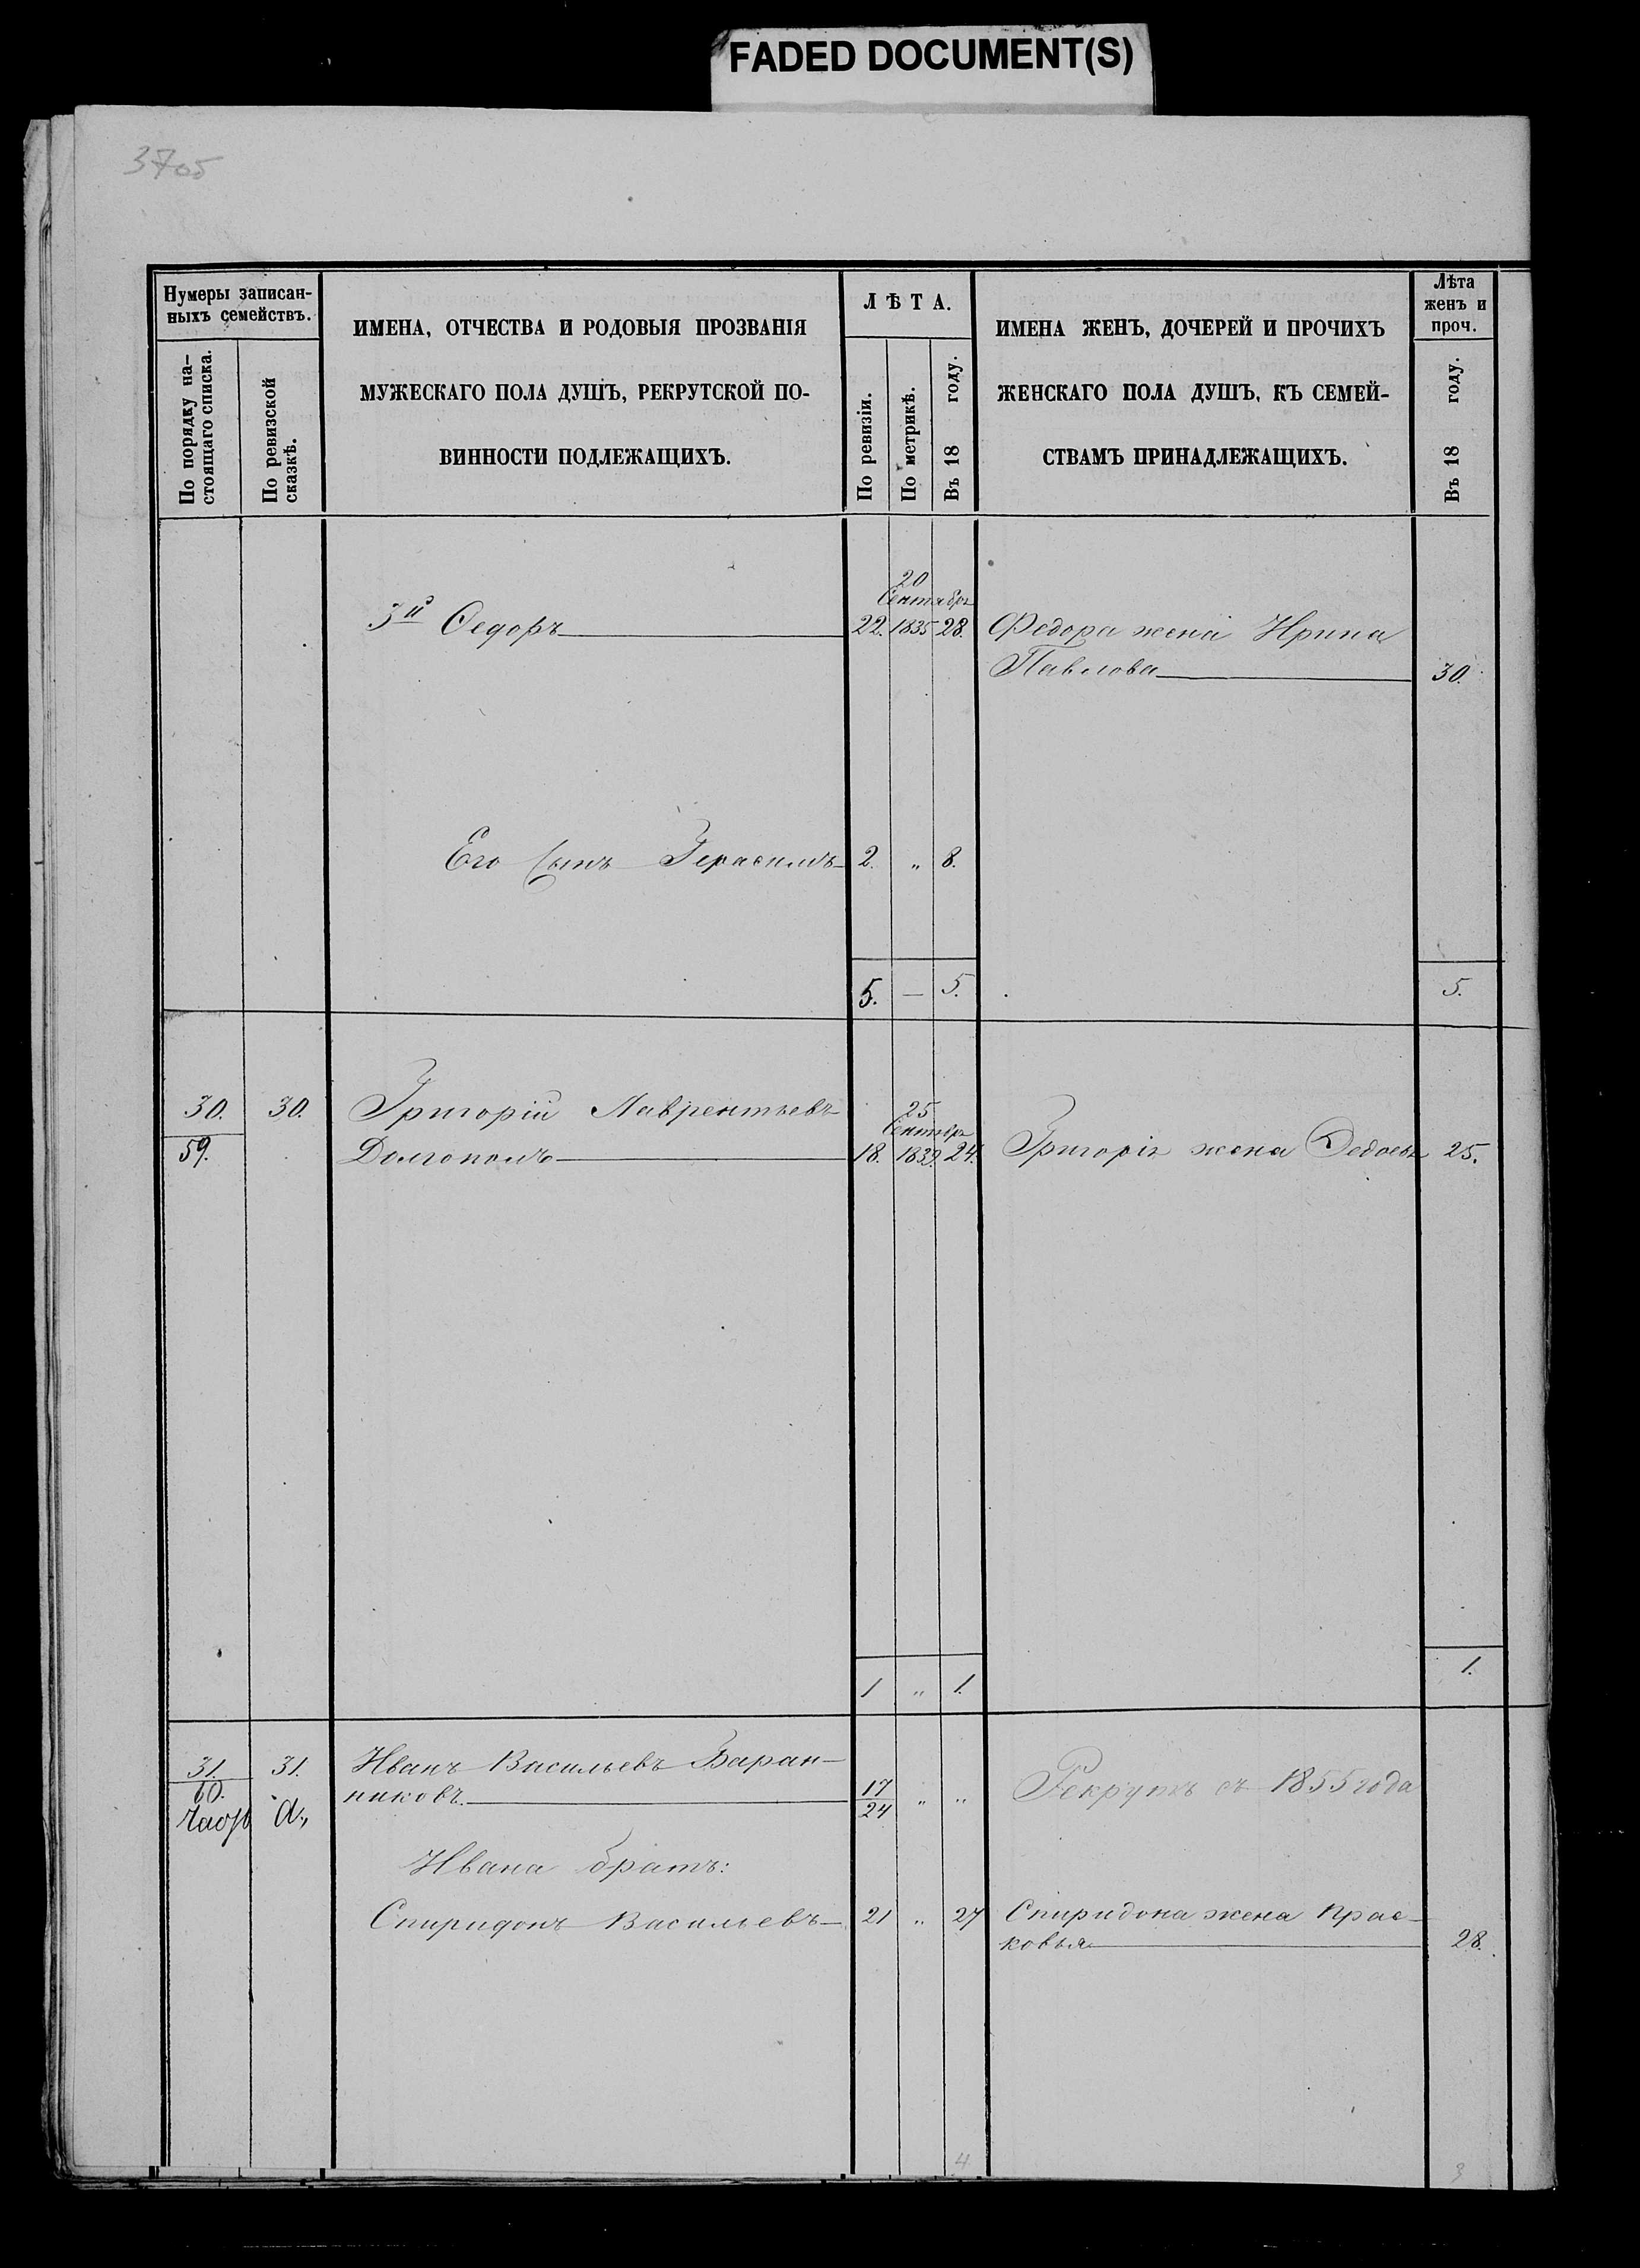 FADED DOCUMENT(S)
3705
Нумеры записан-
ныхъ семействъ.
По порядку на-
стоящаго списка.
По ревизской
сказкѣ.
ИМЕНА, ОТЧЕСТВА И РОДОВЫЯ ПРОЗВАНІЯ
МУЖЕСКАГО ПОЛА ДУШЪ, РЕКРУТСКОЙ ПО-
ВИННОСТИ ПОДЛЕЖАЩИХЪ.
ЛѢТА.
По ревизіи.
По метрикѣ.
Въ 18 году.
ИМЕНА ЖЕНЪ, ДОЧЕРЕЙ И ПРОЧИХЪ
ЖЕНСКАГО ПОЛА ДУШЪ, КЪ СЕМЕЙ-
СТВАМЪ ПРИНАДЛЕЖАЩИХЪ.
Лѣта
женъ и
проч.
Въ 18 году.
20
Сентябр
3й Ѳедоръ 22. 1835 28. Федора жена Ирина
Павлова 30.
Его Сынъ Герасимъ 2. „ 8.
5. — 5. 5.
30. 30. Григорій Лаврентьевъ 25
Сентябр
59. Долгополъ 18. 1839. 24. Григорія жена 25.
1 „ 1. 1.
31. 31. Иванъ Васильевъ Баран-
60. никовъ 17 „ „ Рекрутъ съ 1855 года
24
Ивана братъ:
Спиридонъ Васильевъ 21 „ 27 Спиридона жена Прас-
ковья 28.
4 3